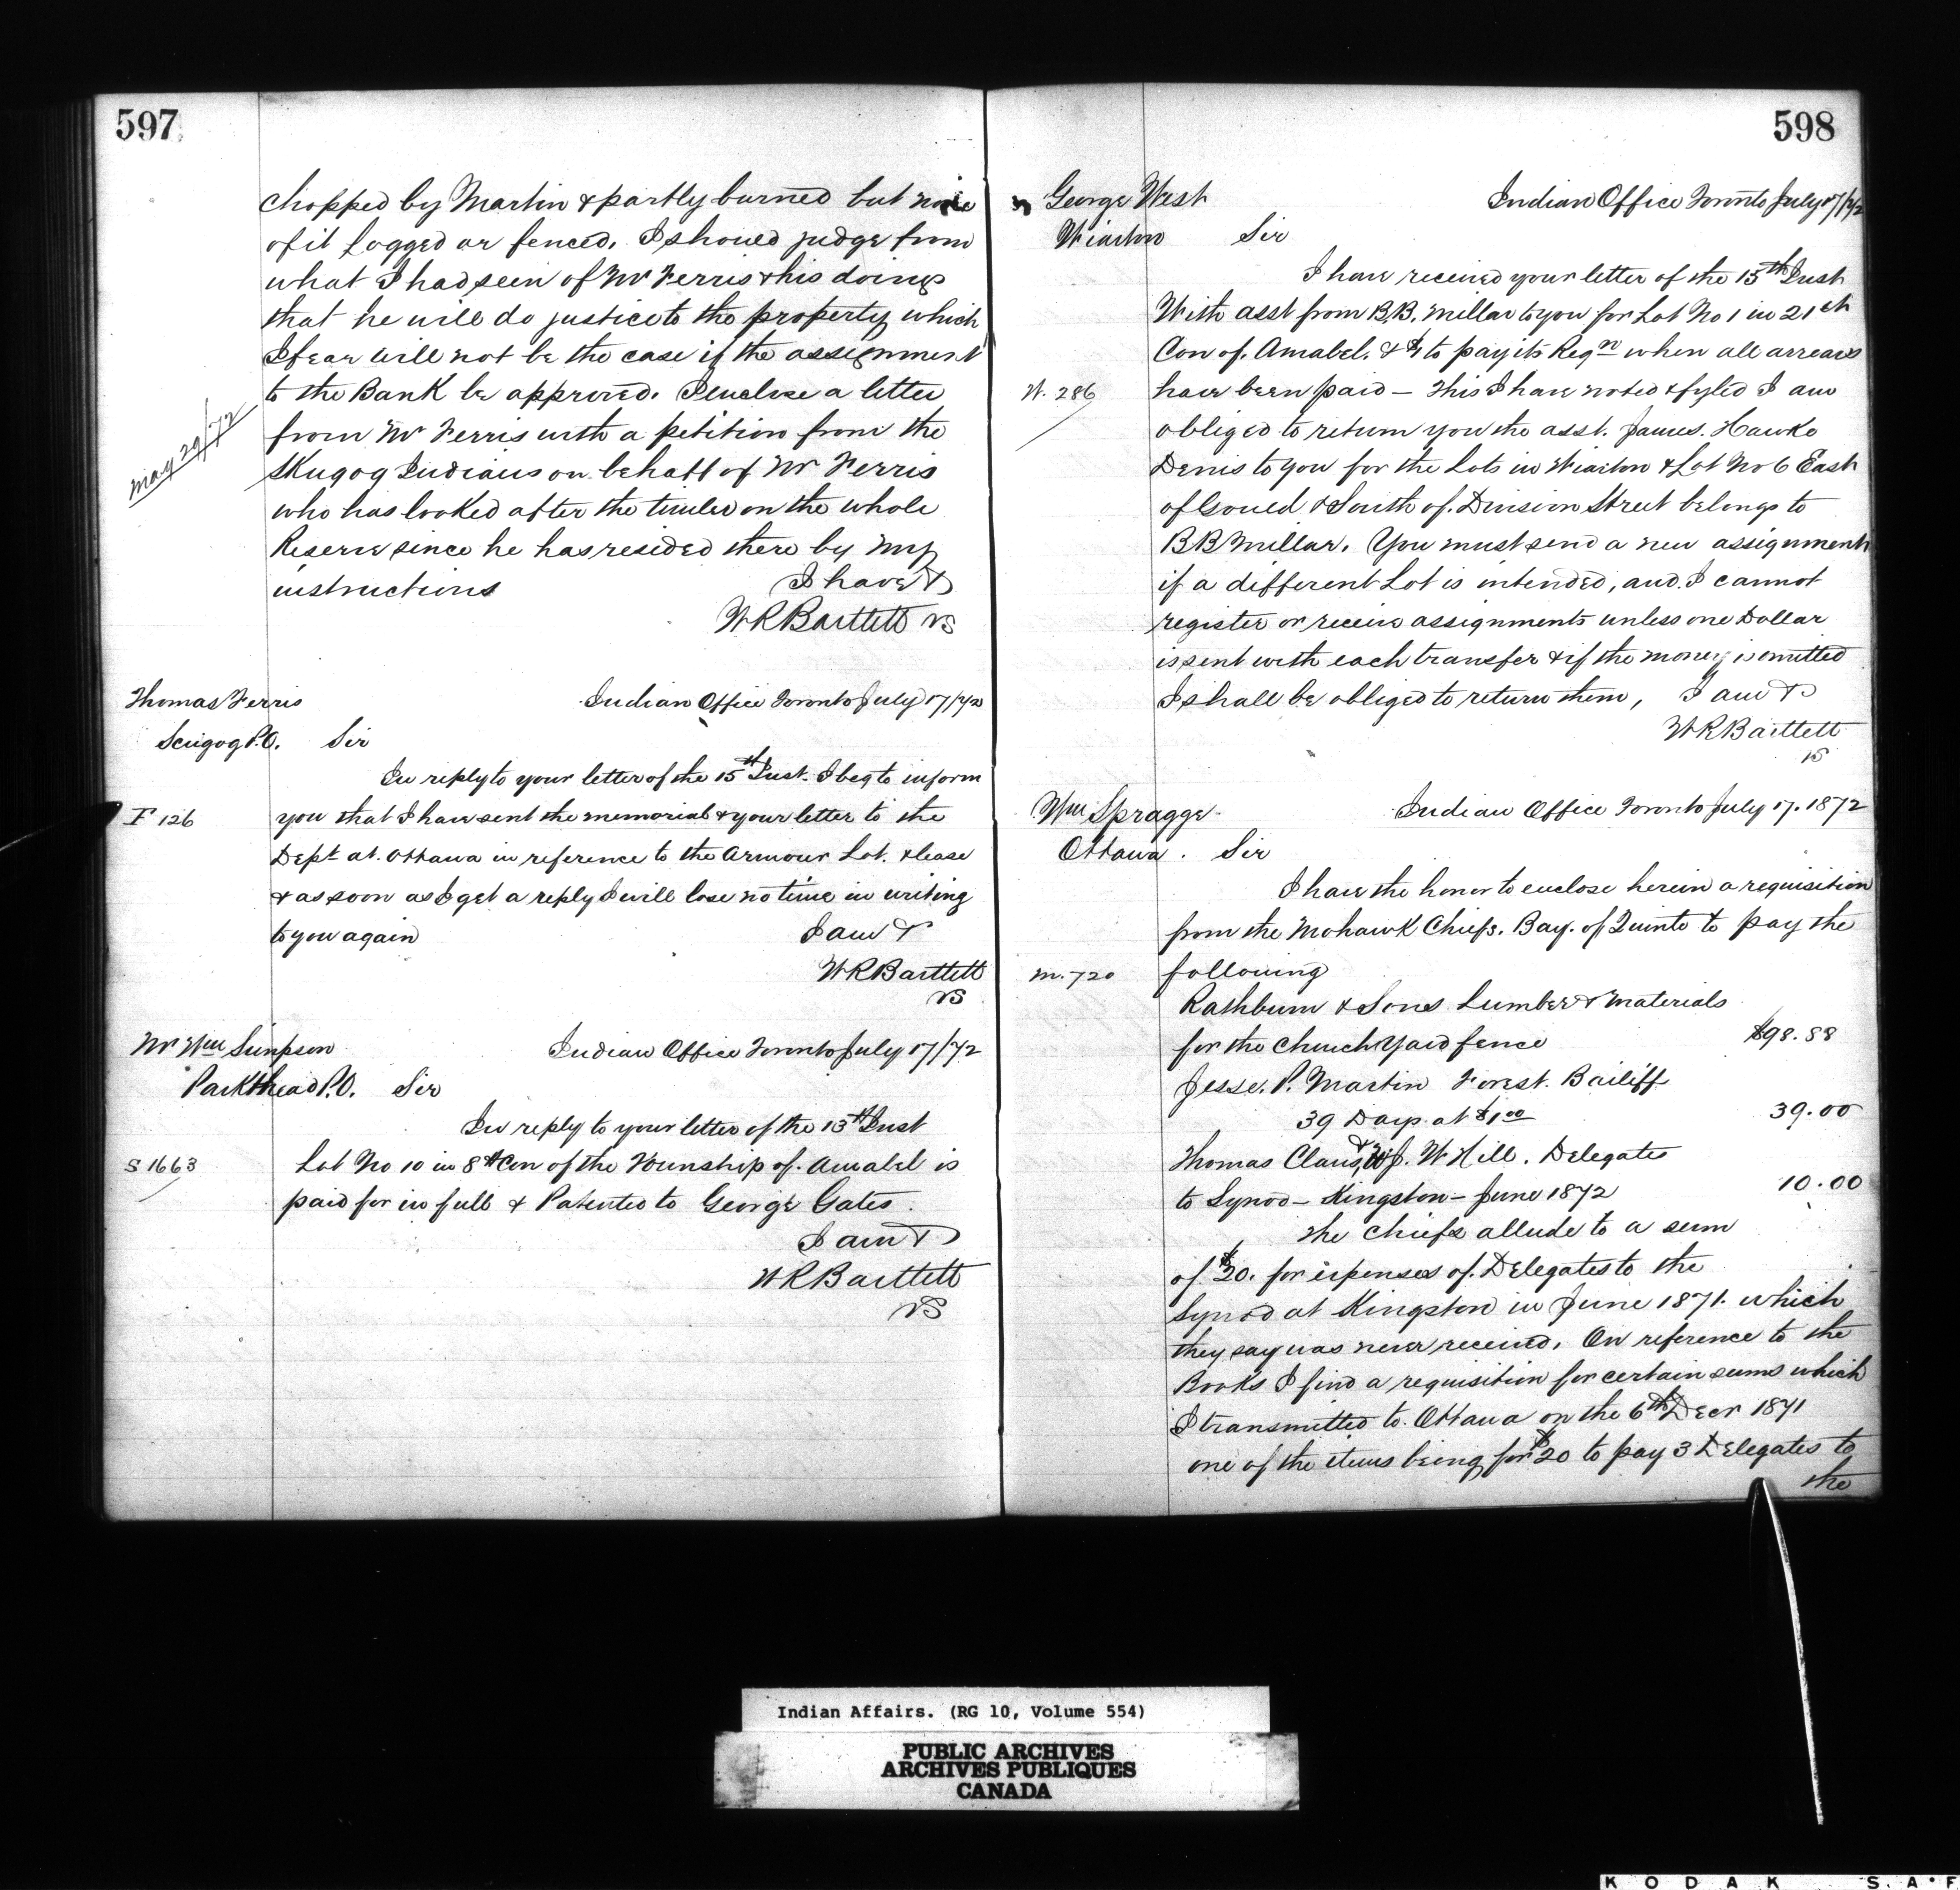 597
chopped by Martin & partly burned but none
of it logged or fenced. I should judge from
what I had seen of Mr Ferris & his doings
that he will do justice to the property which
I fear will not be the case if the assignment
to the Bank be approved. I enclose a letter
May 29/72
from Mr Ferris with a petition from the
Skugog Indians on behalf of Mr Ferris
who has looked after the timber on the whole
Reserve since he has resided there by my
instructions I have &
WRBartlett
Thomas Ferris Indian Office Toronto July 17/72
Scugog P.O. Sir
In reply to your letter of the 15th Inst. I beg to inform
F 126 you that I have sent the memorial & your letter to the
Dept at. Ottawa in reference to the Armour Lot. & lease
& as soon as I get a reply I will lose no time in writing
to you again I am &
WRBartlett
Mr Wm Simpson Indian Office Toronto July 17/72
Parkhead P.O. Sir
In reply to your letter of the 13th Inst
S 1663 Lot No 10 in 8th Con of the Township of. Amabel is
paid for in full & Patented to George Gates.
I am &
WRBartlett
598
George West Indian Office Toronto July 17/72
Wiarton Sir
I have received your letter of the 15th Inst
With asst from B.B. Millar to you for Lot No 1 in 21st
Con of. Amabel. & $1 to pay its Regn when all arrears
W. 286 have been paid — This I have noted & fyled I am
obliged to return you the asst. James. Hawke
Denis to you for the Lots in Wiarton & Lot No 6 East
of Gould & South of. Division Street belongs to
BB Millar. You must send a new assignment
if a different Lot is intended, and. I cannot
register or receive assignments unless one Dollar
is sent with each transfer & if the money is omitted
I shall be obliged to return them, I am &
WRBartlett
Wm Spragge Indian Office Toronto July 17. 1872
Ottawa. Sir
I have the honor to enclose herein a requisition
from the Mohawk Chiefs. Bay. of Quinte to pay the
M. 720 following
Rathburn & Sons Lumber & materials
for the Church Yard fence $98.88
Jesse. P. Martin Forest. Bailiff
39 Days. at $1 00 39.00
Thomas Claus, & J. W Hill. Delegates
to Synod — Kingston — June 1872 10.00
The Chiefs allude to a sum
of $20. for expenses of. Delegates to the
Synod at Kingston in June 1871. which
they say was never received. On reference to the
Books I find a requisition for certain sums which
I transmitted to. Ottawa on the 6th Decr 1871
one of the items being for $20 to pay 3 Delegates to
the
Indian Affairs. (RG 10, Volume 554)
PUBLIC ARCHIVES
ARCHIVES PUBLIQUES
CANADA
KODAK S.A.F